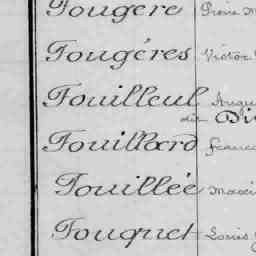 Fougère
Fougères Victor
Fouilleul Augu
dit Di
Fouillard franco
Fouillée Maxi
Fouquet Louis